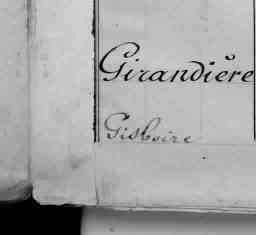 Girandière
Gisloire